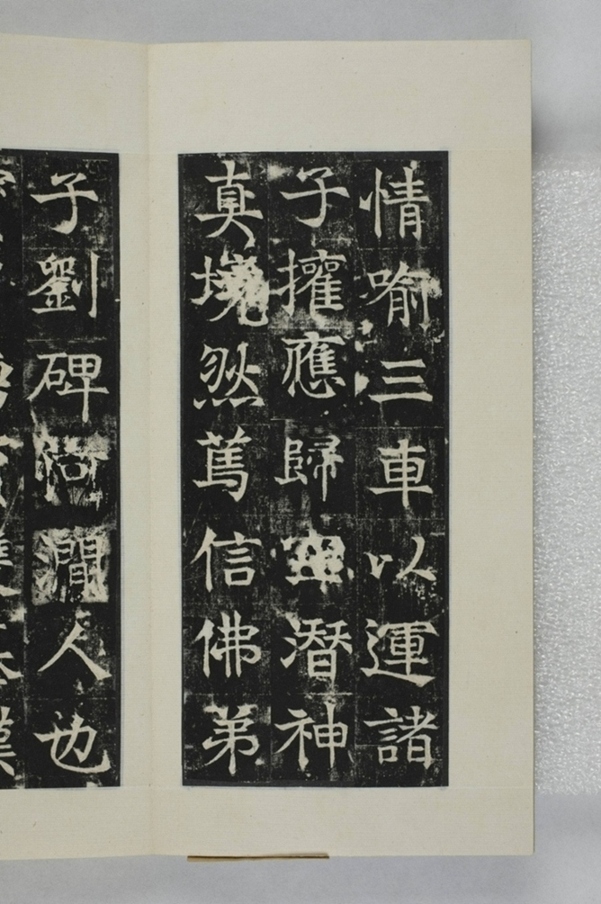 情喻三車以運諸
子擢應歸空潛神
真境然篤信佛弟
子劉碑河澗人也